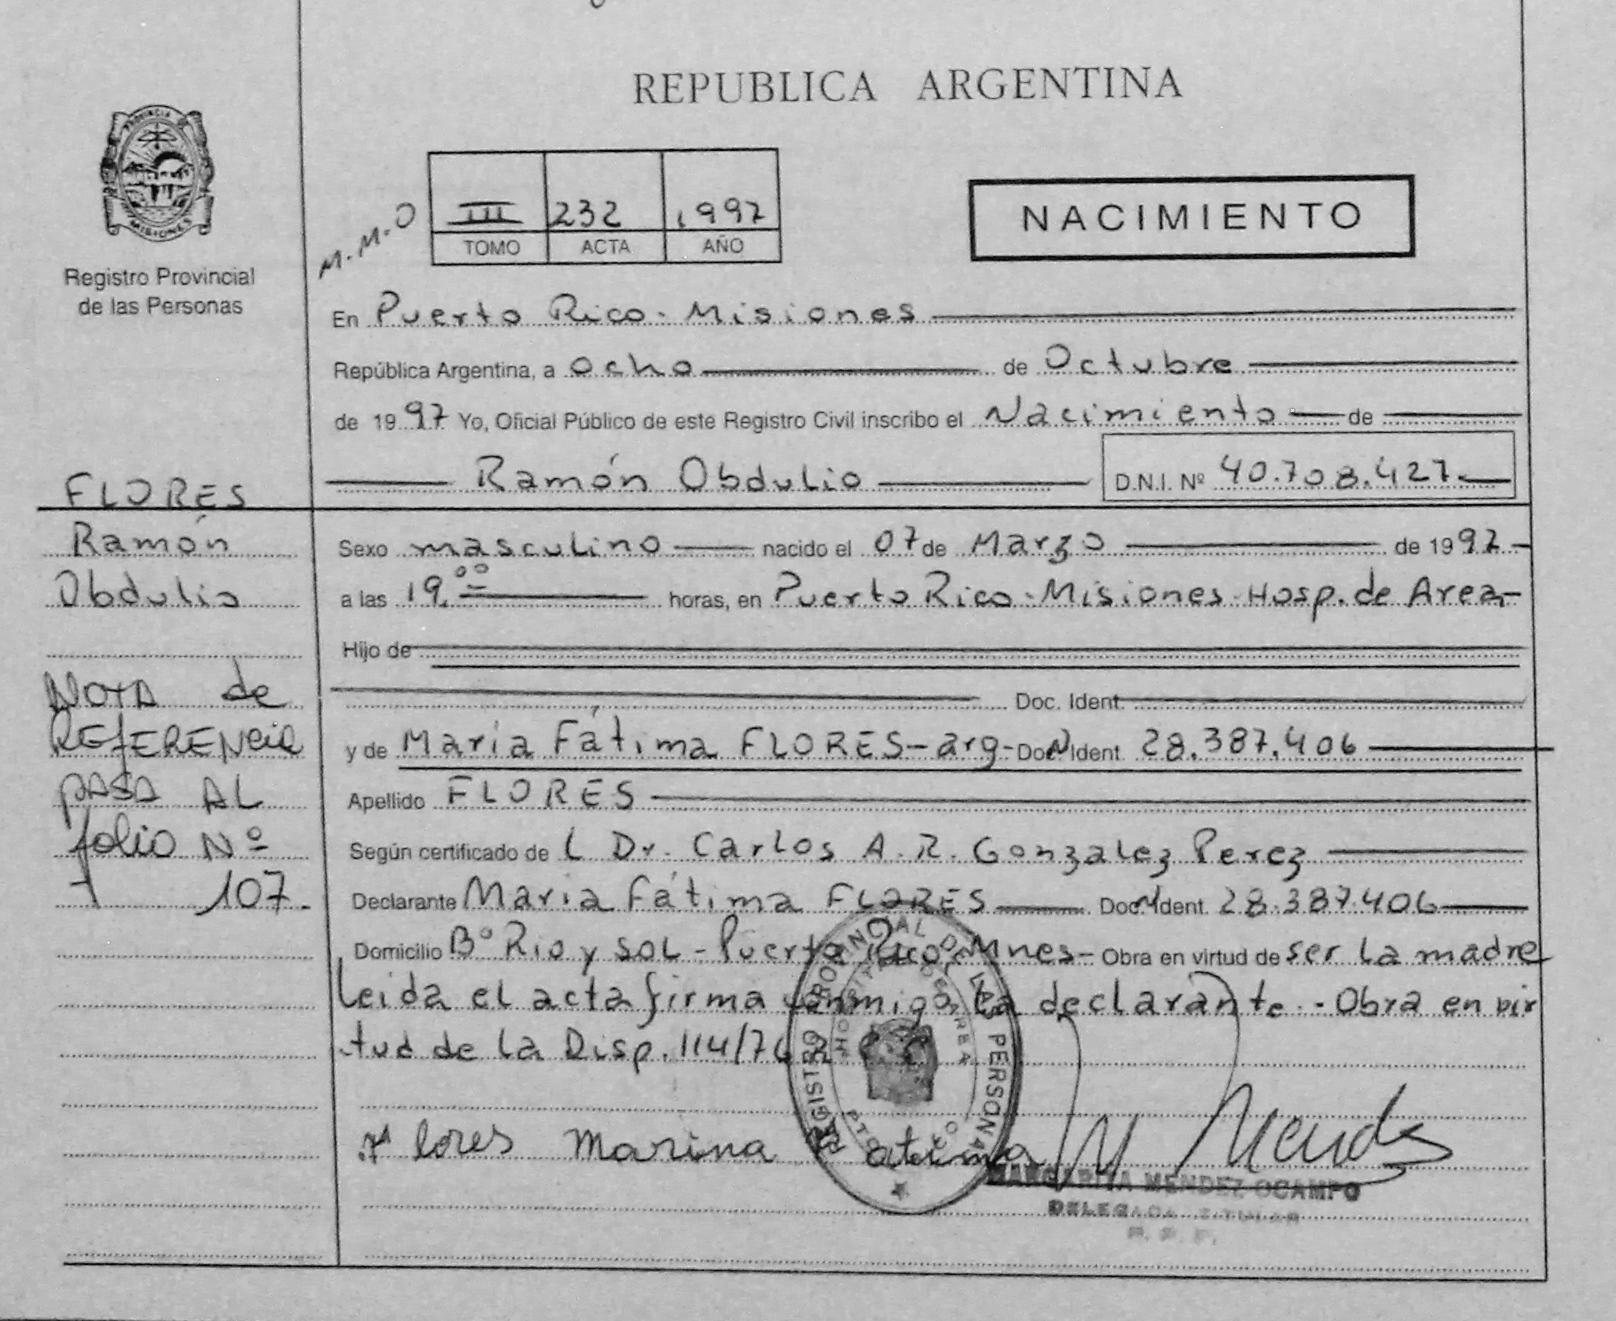 REPUBLICA ARGENTINA
PROVINCIA
MISIONES
Registro Provincial
de las Personas
M.M.O
III 232 1997
TOMO ACTA AÑO
NACIMIENTO
En Puerto Rico - Misiones
República Argentina, a ocho de Octubre
de 1997 Yo, Oficial Público de este Registro Civil inscribo el Nacimiento de
Ramón Obdulio D.N.I. Nº 40.708.427.-
FLORES
Ramón
Obdulio
Sexo masculino nacido el 07 de Marzo de 1997-
a las 19.00 horas, en Puerto Rico - Misiones - Hosp. de Area-
Hijo de
Doc. Ident.
y de María Fátima FLORES - arg - Doc. N Ident. 28.387.406
Apellido FLORES
Según certificado de L Dr. Carlos A. R. Gonzalez Perez
Declarante María Fátima FLORES Doc. N Ident. 28.387.406
Domicilio Bº Rio y SOL - Puerto Rico - Mnes - Obra en virtud de ser la madre
Leida el acta firma conmigo La declarante. - Obra en vir
tud de la Disp. 114/76
NOTA de
REFERENCIA
PASA AL
folio Nº
107.
REGISTRO PROVINCIAL DE LAS PERSONAS
HOSPITAL DE AREA
Flores Marina Fatima
M Mendez
MARGARITA MENDEZ OCAMPO
DELEGADA TITULAR
R. P. P.